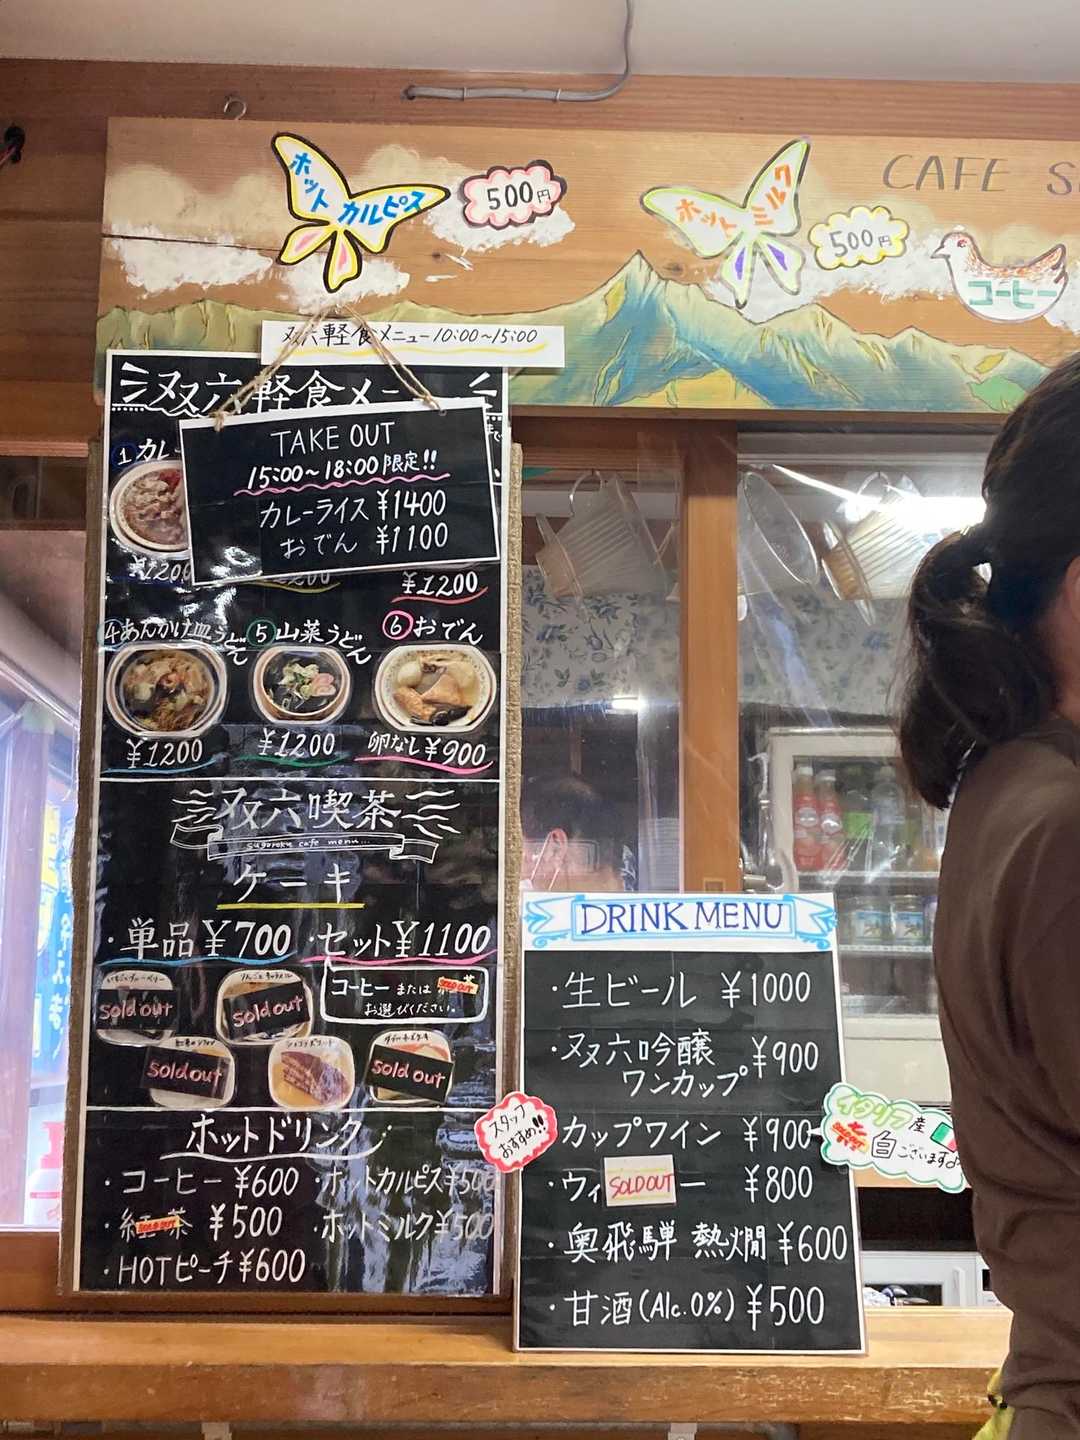 ホット
カルピス
500円
ホット
ミルク
500円
CAFE S
コーヒー
双六軽食メニュー10:00~15:00
双六軽食メニ
TAKE OUT
15:00~18:00限定!!
カレーライス ¥1400
おでん ¥1100
①カレー
¥1200
¥1200
④あんかけ皿うどん
⑤山菜うどん
⑥おでん
¥1200
¥1200
卵なし¥900
双六喫茶
sugoroku cafe menu...
ケーキ
・単品¥700
・セット¥1100
コーヒー または 紅茶
SOLD OUT
お選びください。
Sold out
りんごとキャラメル
Sold out
Sold out
ショコラ
Sold out
ホットドリンク
・コーヒー ¥600
・ホットカルピス¥500
・紅茶 ¥500
SOLD OUT
・ホットミルク¥500
・HOTピーチ¥600
DRINK MENU
・生ビール ¥1000
・双六吟醸
ワンカップ ¥900
スタッフ
おすすめ!!
カップワイン ¥900
イタリア産
SOLD OUT
白ございます♪
・ウィ
SOLD OUT
ー ¥800
・奥飛騨 熱燗 ¥600
・甘酒(Alc.0%) ¥500